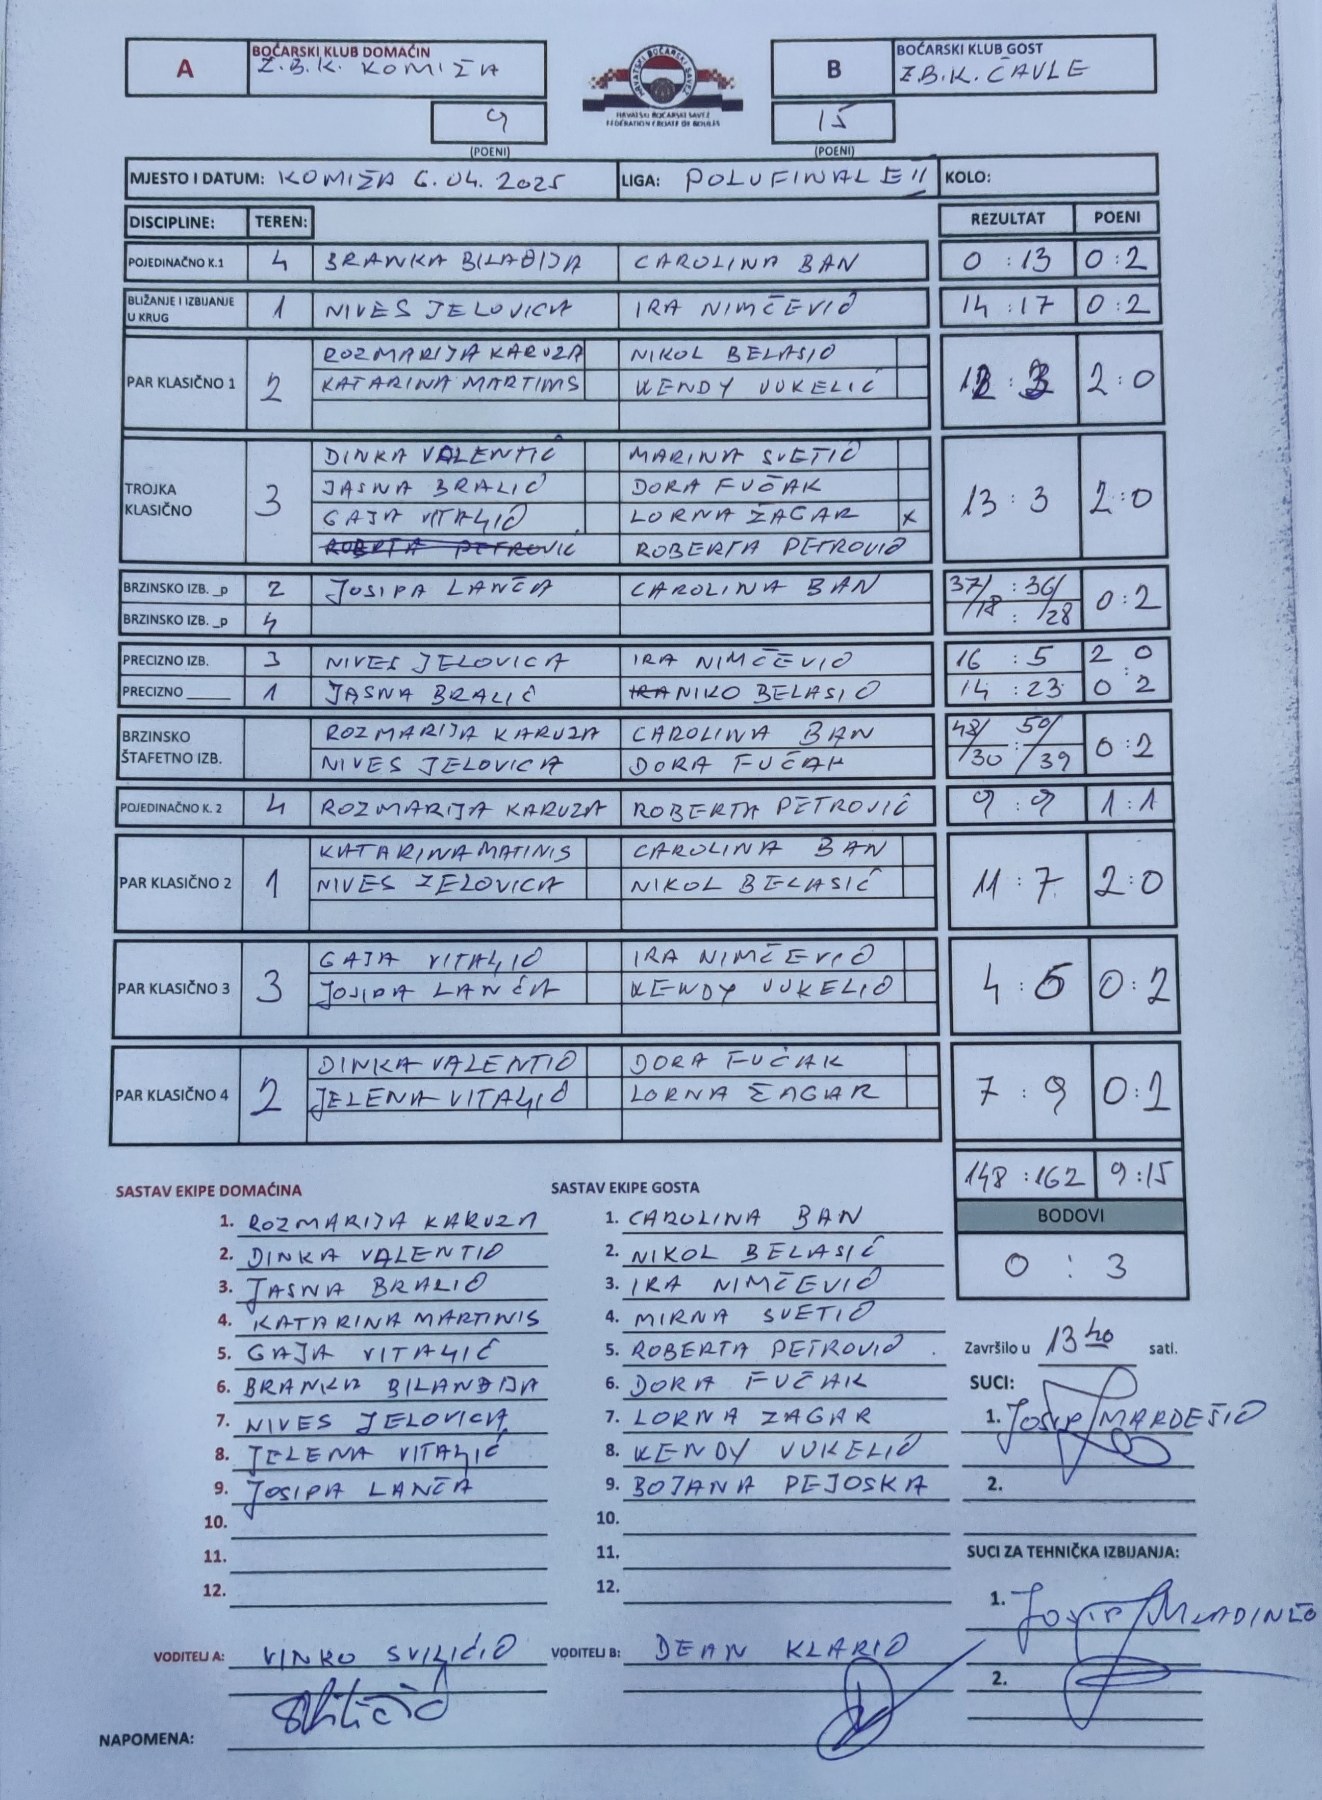 A BOĆARSKI KLUB DOMAĆIN B BOĆARSKI KLUB GOST
Ž.B.K. KOMIŽA Ž.B.K. ČAVLE
HRVATSKI BOĆARSKI SAVEZ
HRVATSKI BOĆARSKI SAVEZ
FÉDÉRATION CROATE DE BOULES
9 15
(POENI) (POENI)
MJESTO I DATUM: KOMIŽA 6.04.2025 LIGA: POLUFINALE II KOLO:
DISCIPLINE: TEREN: REZULTAT POENI
POJEDINAČNO K.1 4 BRANKA BILANĐIJA CAROLINA BAN 0 : 13 0 : 2
BLIŽANJE I IZBIJANJE U KRUG 1 NIVES JELOVICA IRA NIMČEVIĆ 14 : 17 0 : 2
ROZMARIJA KARUZA NIKOL BELASIĆ
PAR KLASIČNO 1 2 KATARINA MARTIMS WENDY VUKELIĆ : 3 2 : 0
DINKA VALENTIĆ MARINA SVETIĆ
TROJKA KLASIČNO 3 JASNA BRALIĆ DORA FUČAK 13 : 3 2 : 0
GAJA VITALJIĆ LORNA ŽAGAR x
ROBERTA PETROVIĆ ROBERTA PETROVIĆ
BRZINSKO IZB. _p 2 JOSIPA LANČA CAROLINA BAN 37/18 : 36/28 0 : 2
BRZINSKO IZB. _p 4
PRECIZNO IZB. 3 NIVES JELOVICA IRA NIMČEVIĆ 16 : 5 2 : 0
PRECIZNO ____ 1 JASNA BRALIĆ IRA NIKO BELASIĆ 14 : 23 0 2
BRZINSKO ROZMARIJA KARUZA CAROLINA BAN 48/30 : 50/39 0 : 2
ŠTAFETNO IZB. NIVES JELOVICA DORA FUČAK
POJEDINAČNO K. 2 4 ROZMARIJA KARUZA ROBERTA PETROVIĆ 9 : 9 1 : 1
KATARINA MATINIS CAROLINA BAN
PAR KLASIČNO 2 1 NIVES ZELOVICA NIKOL BELASIĆ 11 : 7 2 : 0
GAJA VITALJIĆ IRA NIMČEVIĆ
PAR KLASIČNO 3 3 JOSIPA LANČA WENDY VUKELIĆ 4 : 5 0 : 2
DINKA VALENTIĆ DORA FUČAK
PAR KLASIČNO 4 2 JELENA VITALJIĆ LORNA ŽAGAR 7 : 9 0 : 2
148 : 162 9 : 15
SASTAV EKIPE DOMAĆINA SASTAV EKIPE GOSTA BODOVI
0 : 3
1. ROZMARIJA KARUZA 1. CAROLINA BAN
2. DINKA VALENTIĆ 2. NIKOL BELASIĆ
3. JASNA BRALIĆ 3. IRA NIMČEVIĆ
4. KATARINA MARTINIS 4. MIRNA SVETIĆ
5. GAJA VITALJIĆ 5. ROBERTA PETROVIĆ Završilo u 13 40 sati.
6. BRANKA BILANĐIJA 6. DORA FUČAK SUCI:
7. NIVES JELOVICA 7. LORNA ZAGAR 1. JOSIP MARDEŠIĆ
8. JELENA VITALJIĆ 8. WENDY VUKELIĆ
9. JOSIPA LANČA 9. BOJANA PEJOSKA 2.
10. 10.
11. 11. SUCI ZA TEHNIČKA IZBIJANJA:
12. 12.
1. JOSIP MLADINEO
VODITELJ A: VINKO SVILIČIĆ VODITELJ B: DEAN KLARIĆ
2.
NAPOMENA: